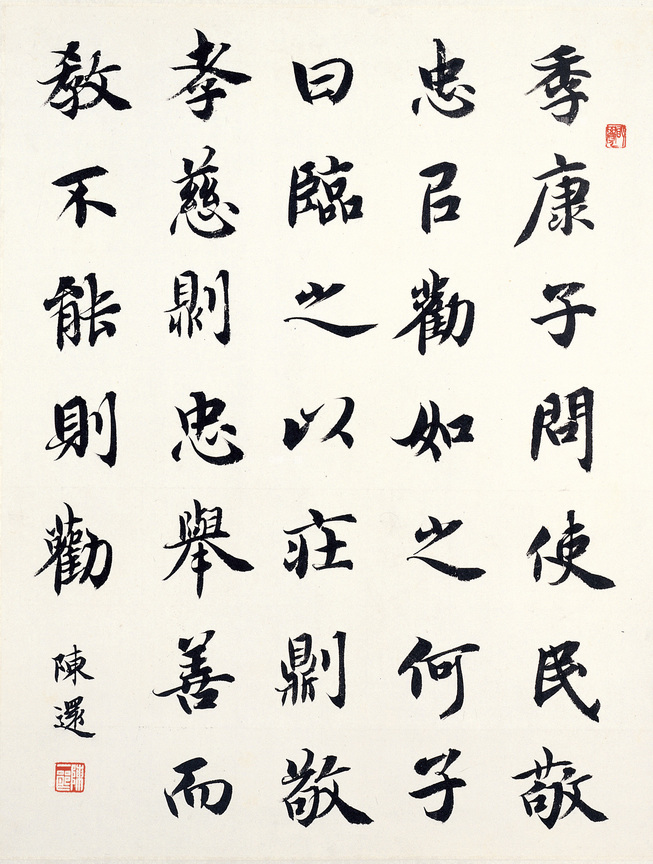 季康子問使民敬
忠㠯勸如之何子
曰臨之以庄𠟭敬
孝慈𠟭忠舉善而
教不能則勸
陳還